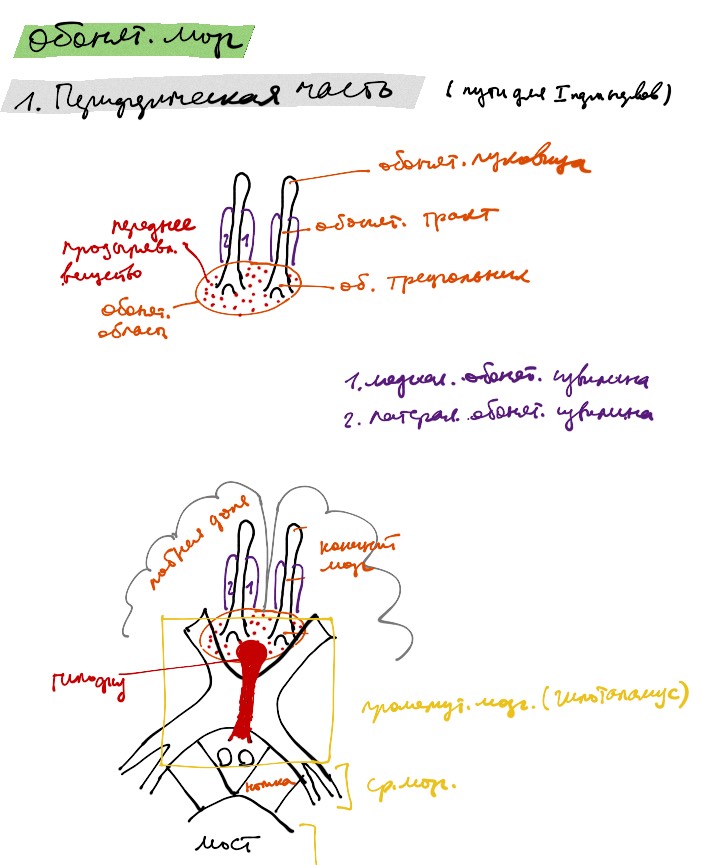 обонят. мозг
1. Периферическая часть (пути для I пары нервов)
обонят. луковица
переднее
продырявл.
вещество
обонят. тракт
2 1
об. треугольник
обонят.
область
1. медиал. обонят. извилина
2. латерал. обонят. извилина
лобная доля
конечный
мозг
2 1
гипофиз
промежут. мозг. (гипоталамус)
ножка
ср. мозг.
мост